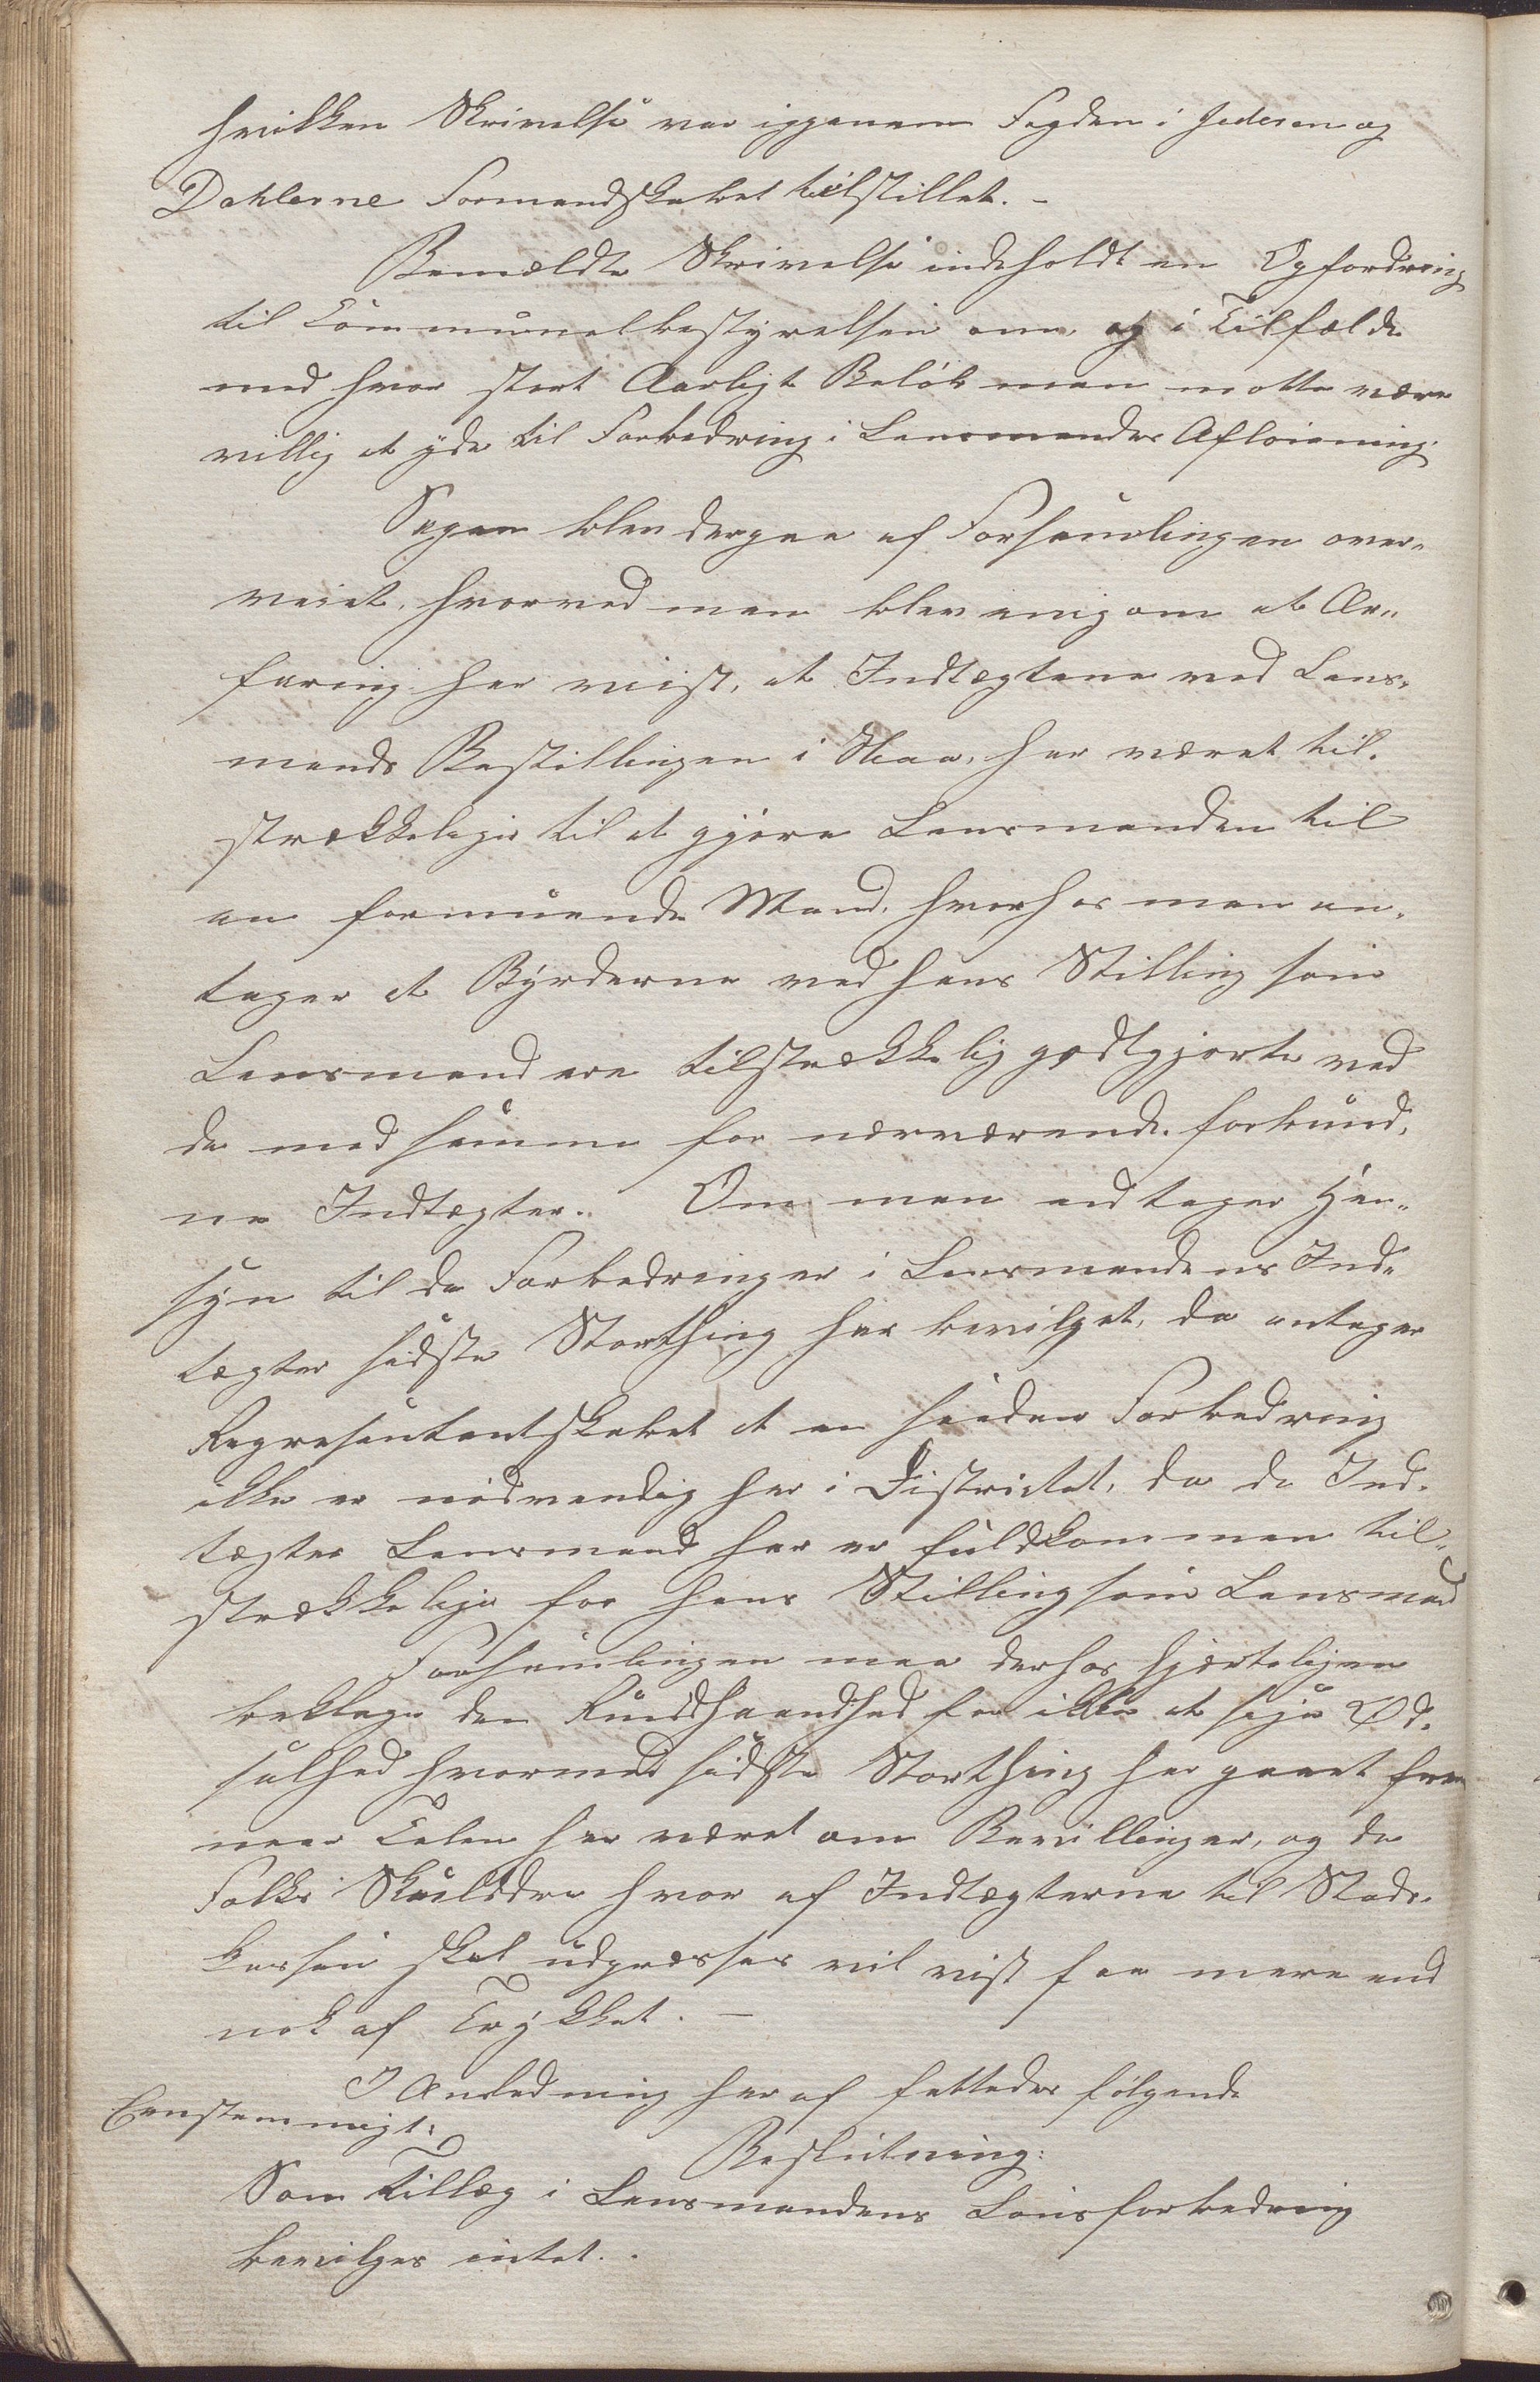 hvilken Skrivelse var igjenem Fogden i Jederen og
Dahlerne Formandskabet tilstillet. -
Bemældte Skrivelse indeholdt en Opfordring
til Communalbestyrelsen om, og i Tilfælde
med hvor stort Aarligt Beløb man motte være
villig at yde til Forbedring i Lensmandens Afløining.
Sagen blev derpaa af Forsamlingen over„
veiet, hvorved man blev enig om at Er„
faring har viist, at Indtægtene ved Lens„
mands Bestillingen i Haa, har været til„
strækkelige til at gjøre Lensmanden til
en formuende Mand, hvorhos man an„
tager at Byrderne ved hans Stilling som
Lensmand ere tilstrækkelig godtgjorte ved
de med samme for nærværende forbund„
ne Indtægter. Om man end tager Hen„
syn til de Forbedringer i Lensmandens Ind„
tægter sidste Storthing har bevilget, da antager
Repræsentantskabet at en saadan Forbedring
ikke er nødvendig her i Districtet, da de Ind„
tægter Lensmand har er fuldkommen til„
strækkelige for hans Stilling som Lensmand
Forsamlingen maa derhos hjerteligen
beklage den Rundhaandhed for ikke at sige Ød„
selhed hvormed sidste Storthing har gaaet frem
naar Talen har været om Bevillinger, og de
Folks Skulddre hvor af Indtægterne til Stads„
kassen skal udpresses vil vist faa mere end
nok af Trykket. —
I Anledning her af fattedes følgende
Eenstemmigt:
Beslutning:
Som Tillæg i Lensmandens Lønsforbedring
bevilges intet. .